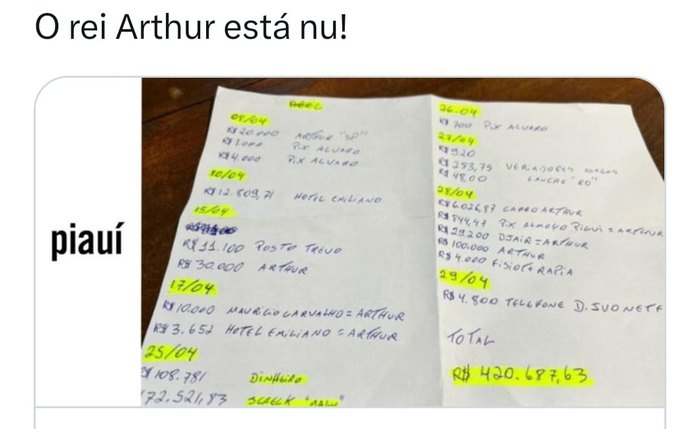 O rei Arthur está nu!
piauí
ABRIL
09/04
R$20.000 ARTHUR "SP"
PIX ALVARO
R$4.000 PIX ALVARO
10/04
R$12.809,71 HOTEL EMILIANO
15/04
R$11.100 POSTO TREVO
R$30.000 ARTHUR
17/04
R$10.000 MAURICIO CARVALHO = ARTHUR
R$3.652 HOTEL EMILIANO = ARTHUR
25/04
R$108.781 DINHEIRO
72.521,83
26.04
R$700 PIX ALVARO
27/04
R$920
R$293,75
R$4800
28/04
CARRO ARTHUR
R$844,47 PIX = ARTHUR
R$29.200 DJAIR = ARTHUR
R$100.000 ARTHUR
R$4.000 FISIOTERAPIA
29/04
R$4.800 TELEFONE D. IVONETE
TOTAL
R$420.687,63